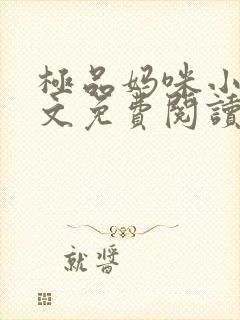 極品妈咪小
文免費閱讀
就醬